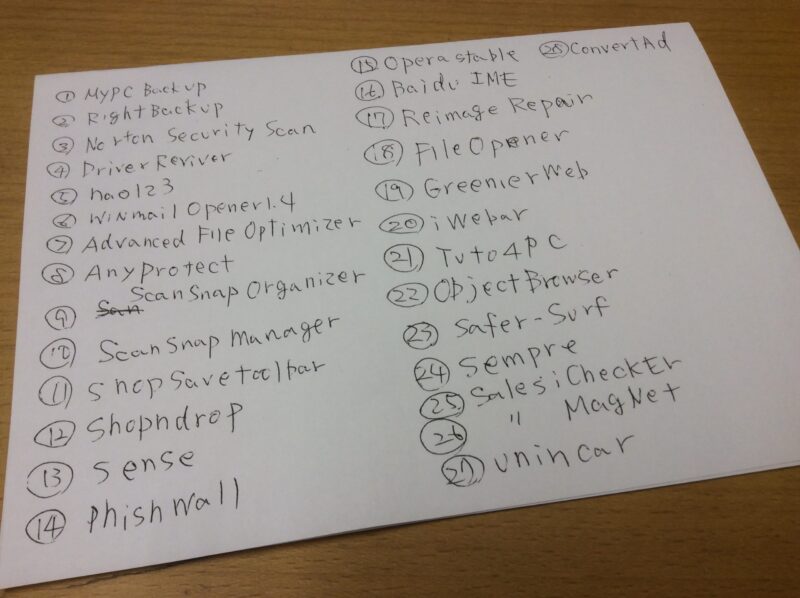 ① MyPC Backup
② RightBackup
③ Norton Security Scan
④ DriverReviver
⑤ hao123
⑥ WinmailOpener1.4
⑦ Advanced File Optimizer
⑧ AnyProtect
⑨ Scan ScanSnap Organizer
⑩ ScanSnap Manager
⑪ shopsavetoolbar
⑫ Shopndrop
⑬ Sense
⑭ PhishWall
⑮ Operastable
⑯ Baidu IME
⑰ Reimage Repair
⑱ FileOpener
⑲ GreenierWeb
⑳ iWebar
㉑ Tuto4PC
㉒ ObjectBrowser
㉓ Safer-Surf
㉔ Sempre
㉕ SalesiCheckEr
㉖ 〃 MagNet
㉗ unincar
㉘ ConvertAd